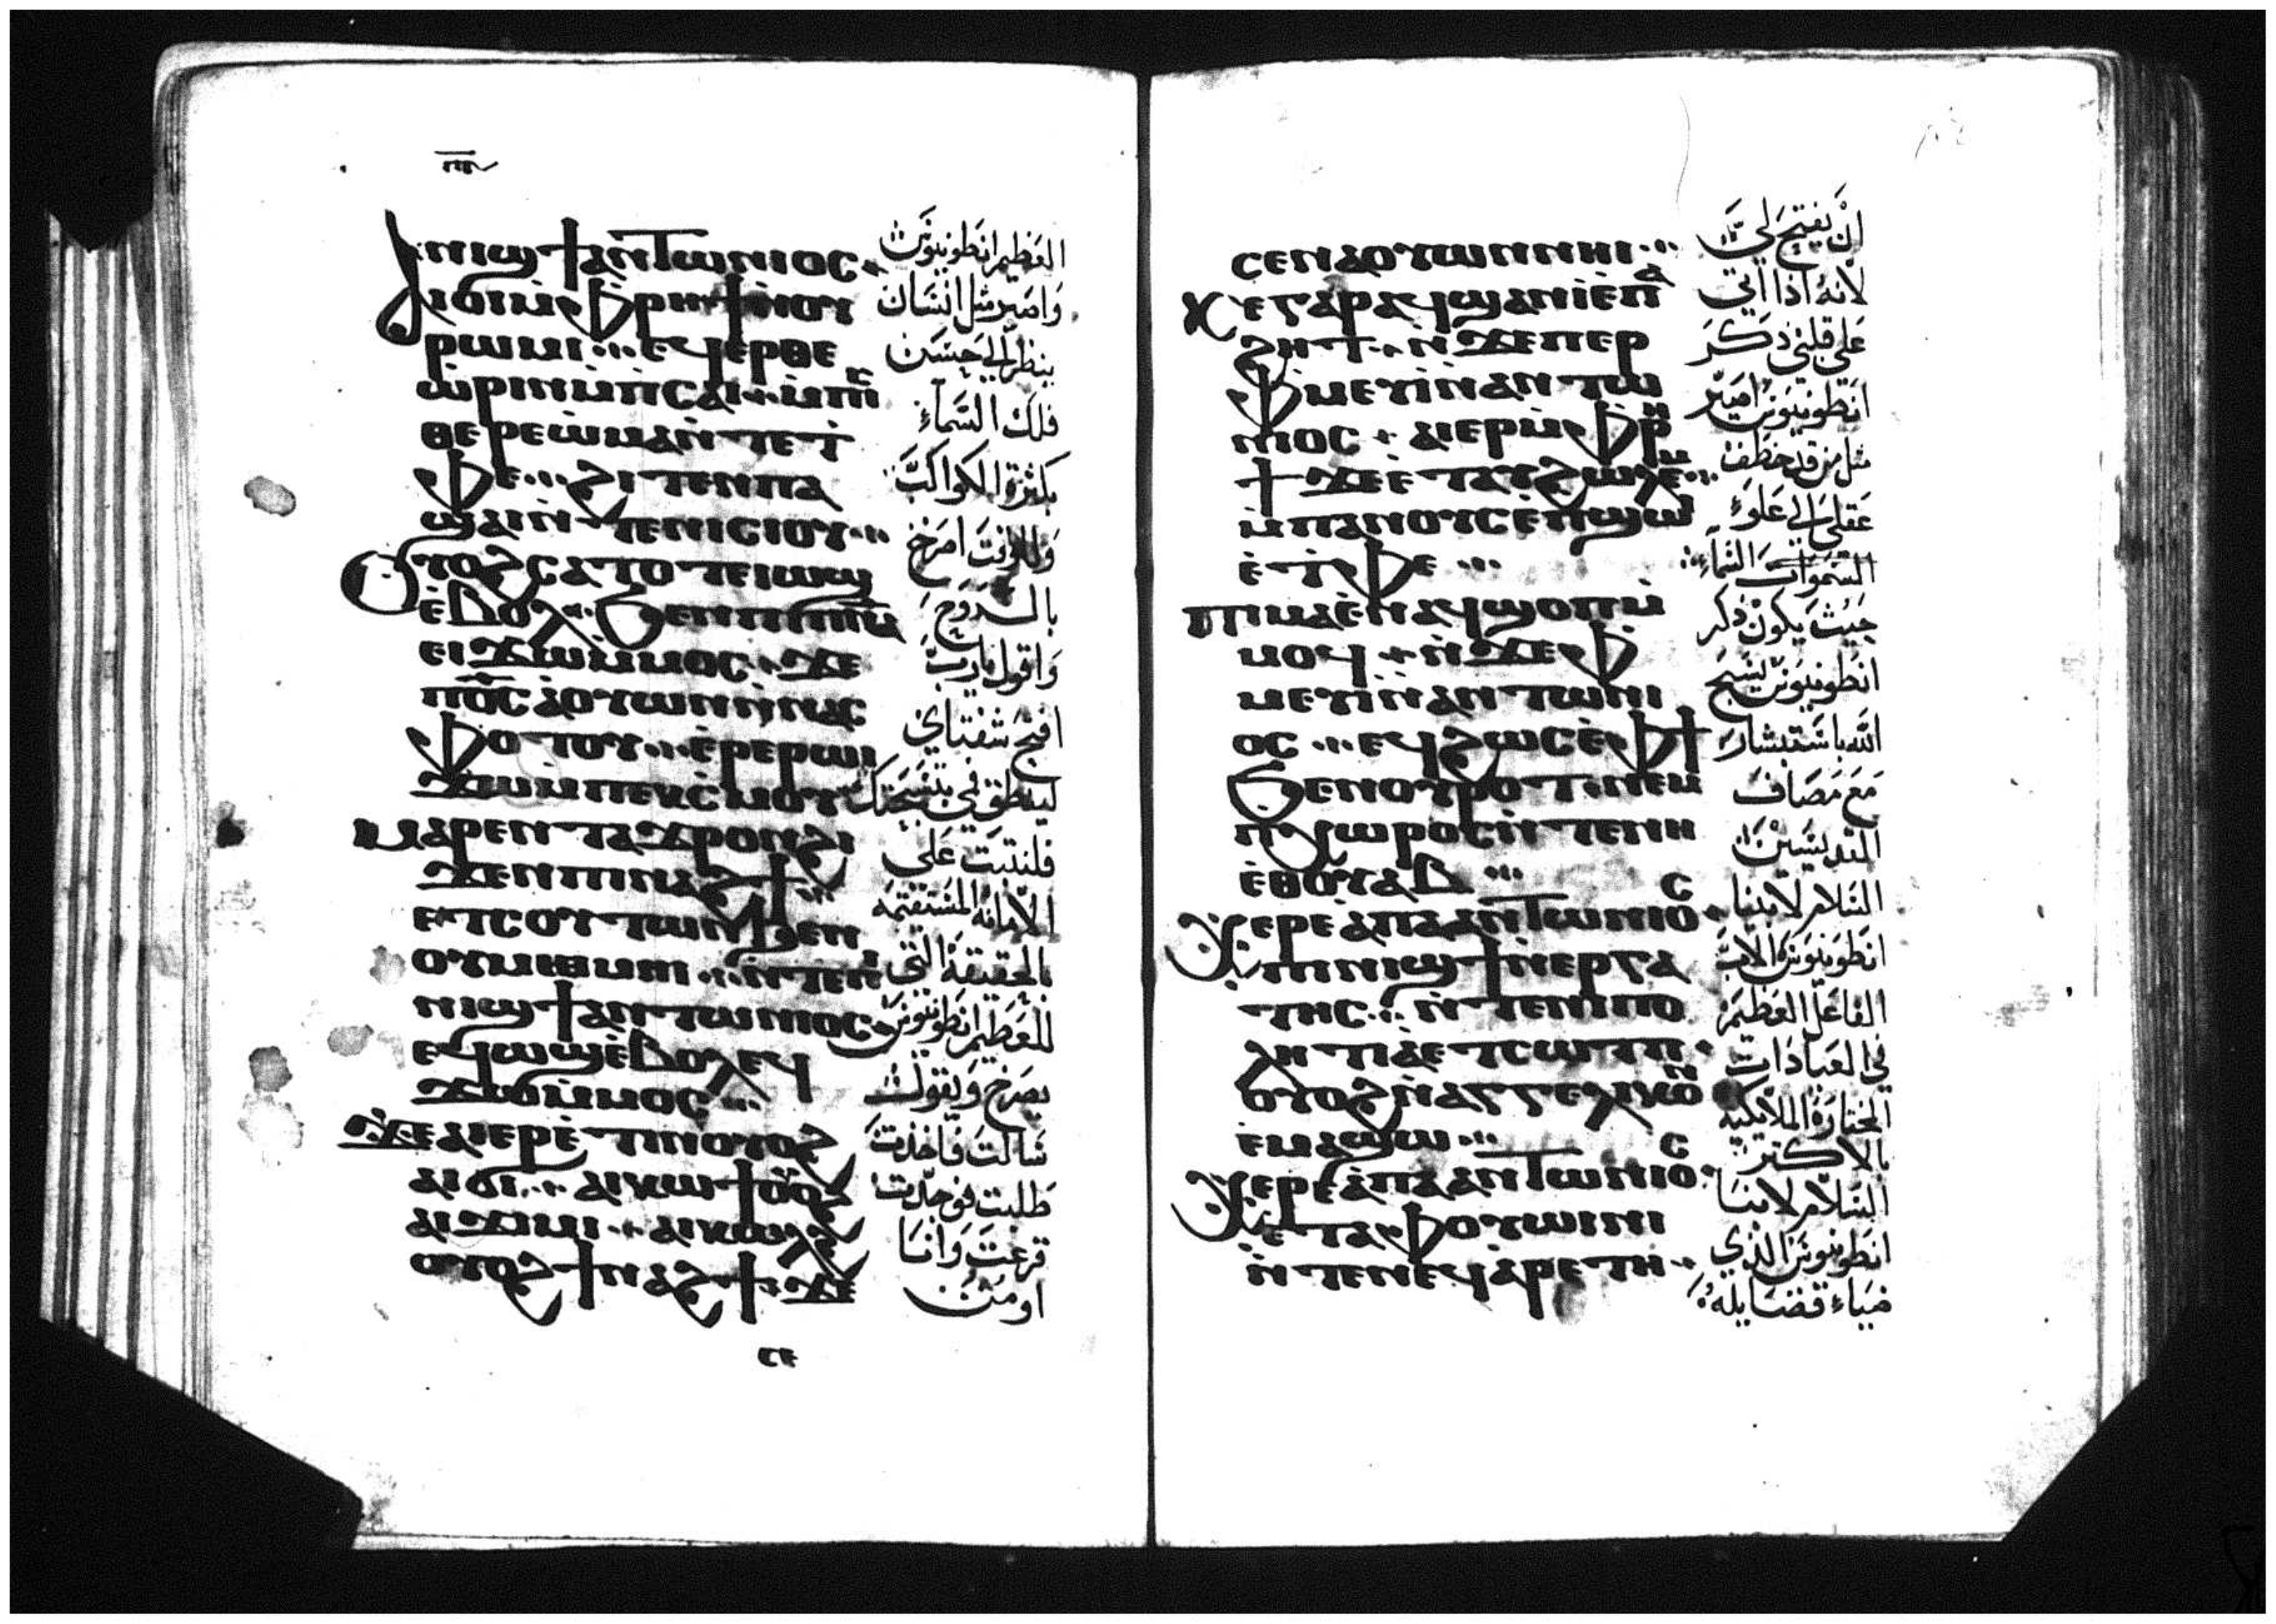 ⲛⲓϣϯ ⲁⲛⲧⲱⲛⲓⲟⲥ
ⲁⲓϭⲓⲙ̀ⲫⲣⲏϯ ⲛ̀ⲟⲩ
ⲣⲱⲙⲓ ⲉϥⲉⲣⲑⲉ
ⲱⲣⲓⲛ ⲙ̀ⲡⲥⲁⲓ
ⲑⲉⲣⲉⲱⲙⲁ ⲛ̀ⲧⲉ ⲧ̀
ⲫⲉ ϩⲓⲧⲉⲛ ⲡⲁ
ϣⲁⲓ ⲛ̀ⲧⲉ ⲛⲓⲥⲓⲟⲩ
ⲟⲩⲟϩ ⲥⲁⲧⲟⲧ ⲉⲓⲱϣ
ⲉ̀ⲃⲟⲗ ϧⲉⲛ ⲡⲓⲡ̅ⲛ̅ⲁ̅
ⲉⲓϫⲱ ⲙ̀ⲙⲟⲥ ϫⲉ
ⲡ⳪ ⲁ̀ⲟⲩⲱⲛ ⲛ̀ⲛⲁⲥ
ⲫⲟⲧⲟⲩ ⲉ̀ⲣⲉ ⲣⲱⲓ
ϫⲱ ⲙ̀ⲡⲉⲕⲥ̀ⲙⲟⲩ
ⲙⲁⲣⲉⲛⲧⲁϫⲣⲟⲛ ϩⲓ
ϫⲉⲛ ⲡⲓⲛⲁϩϯ
ⲉⲧⲥⲟⲩⲧⲱⲛ ϧⲉⲛ
ⲟⲩⲙⲉⲑⲙⲏⲓ ⲛ̀ⲧⲉ ⲡⲓ
ⲛⲓϣϯ ⲁⲛⲧⲱⲛⲓⲟⲥ
ⲉϥⲱϣ ⲉ̀ⲃⲟⲗ ⲉϥ
ϫⲱ ⲙ̀ⲙⲟⲥ
ϫⲉ ⲁⲓⲉⲣⲉ̀ⲧⲓⲛ ⲟⲩⲟϩ
ⲁⲓϭⲓ ⲁⲓⲕⲱϯ ⲟⲩⲟϩ
ⲁⲓϫⲓⲙⲓ ⲁⲓⲕⲱⲗϩ
ⲟⲩⲟϩ ϯⲛⲁϩϯ ϫⲉ
العظيم انطونيوس
واصير مثل انسان
ينظر الى حسن
فلك السماء
بكثرة الكواكب
وللوقت اصرخ
بالروح
واقول يارب
افتح شفتاي
لينطق فمي بتسبحتك
فلنثبت على
الامانة المستقيمة
الحقيقة التي
للعظيم انطونيوس
يصرخ ويقول
سالت فاخذت
طلبت فوجدت
قرعت وانا
اومن
ⲥⲉⲛⲁⲟⲩⲱⲛ ⲛⲏⲓ
ⲕⲉ ⲅⲁⲣ ⲁϥϣⲁⲛⲓ̀ ⲉ̀ⲡⲁ
ϩⲏⲧ ⲛ̀ϫⲉ ⲡⲉⲣ
ⲫⲙⲉⲩⲓ̀ ⲛ̀ⲁⲛⲧⲱ
ⲛⲓⲟⲥ ⲁⲓⲉⲣ ⲙ̀ⲫⲣⲏ
ϯ ϫⲉ ⲉ̀ⲧⲁⲩϩⲱⲗⲉⲙ
ⲙ̀ⲡⲁⲛⲟⲩⲥ ⲉ̀ⲡϣⲱⲓ
ⲉ̀ⲧ̀ⲫⲉ
ⲡⲓⲙⲁ ⲉ̀ⲛⲁϥϣⲟⲡ ⲙ̀
ⲙⲟϥ ⲛ̀ϫⲉ ⲫ
ⲙⲉⲩⲓ̀ ⲛ̀ⲁⲛⲧⲱⲛⲓ
ⲟⲥ ⲉϥϩⲱⲥ ⲉ̀ⲫϯ
ϧⲉⲛ ⲟⲩⲣⲟⲧ ⲛⲉⲙ
ⲡ̀ⲭⲱⲣⲟⲥ ⲛ̀ⲧⲉ ⲛⲏ
ⲉ̀ⲑⲟⲩⲁⲃ
ⲭⲉⲣⲉ ⲁⲡⲁ ⲁⲛⲧⲱⲛⲓⲟⲥ
ⲡⲓⲛⲓϣϯ ⲛ̀ⲉⲣⲅⲁ
ⲧⲏⲥ ⲛ̀ⲧⲉ ⲛⲓⲡⲟ
ⲗⲏⲧⲓⲁ ⲉⲧⲥⲱⲧⲡ
ⲟⲩⲟϩ ⲛ̀ⲁⲅⲅⲉⲗⲓⲕⲟⲛ
ⲉ̀ⲙⲁϣⲱ
ⲭⲉⲣⲉ ⲁⲡⲁ ⲁⲛⲧⲱⲛⲓⲟⲥ
ⲉ̀ⲧⲁ ⲫⲟⲩⲱⲓⲛⲓ
ⲛ̀ⲧⲉ ⲛⲉϥⲁⲣⲉⲧⲏ
ان يفتح لي
لانه اذا اتى
على قلبي ذكر
انطونيوس اصير
مثل من قد خطف
عقلي الى علو
السموات السماء
حيث يكون ذكر
انطونيوس يسبح
الله باستبشار
مع مصاف
القديسين
السلام لابينا
انطونيوس الاب
الفاعل العظيم
في العبادات
المختارة الملايكية
بالاكثر
السلام لابينا
انطونيوس الذي
ضياء فضايله